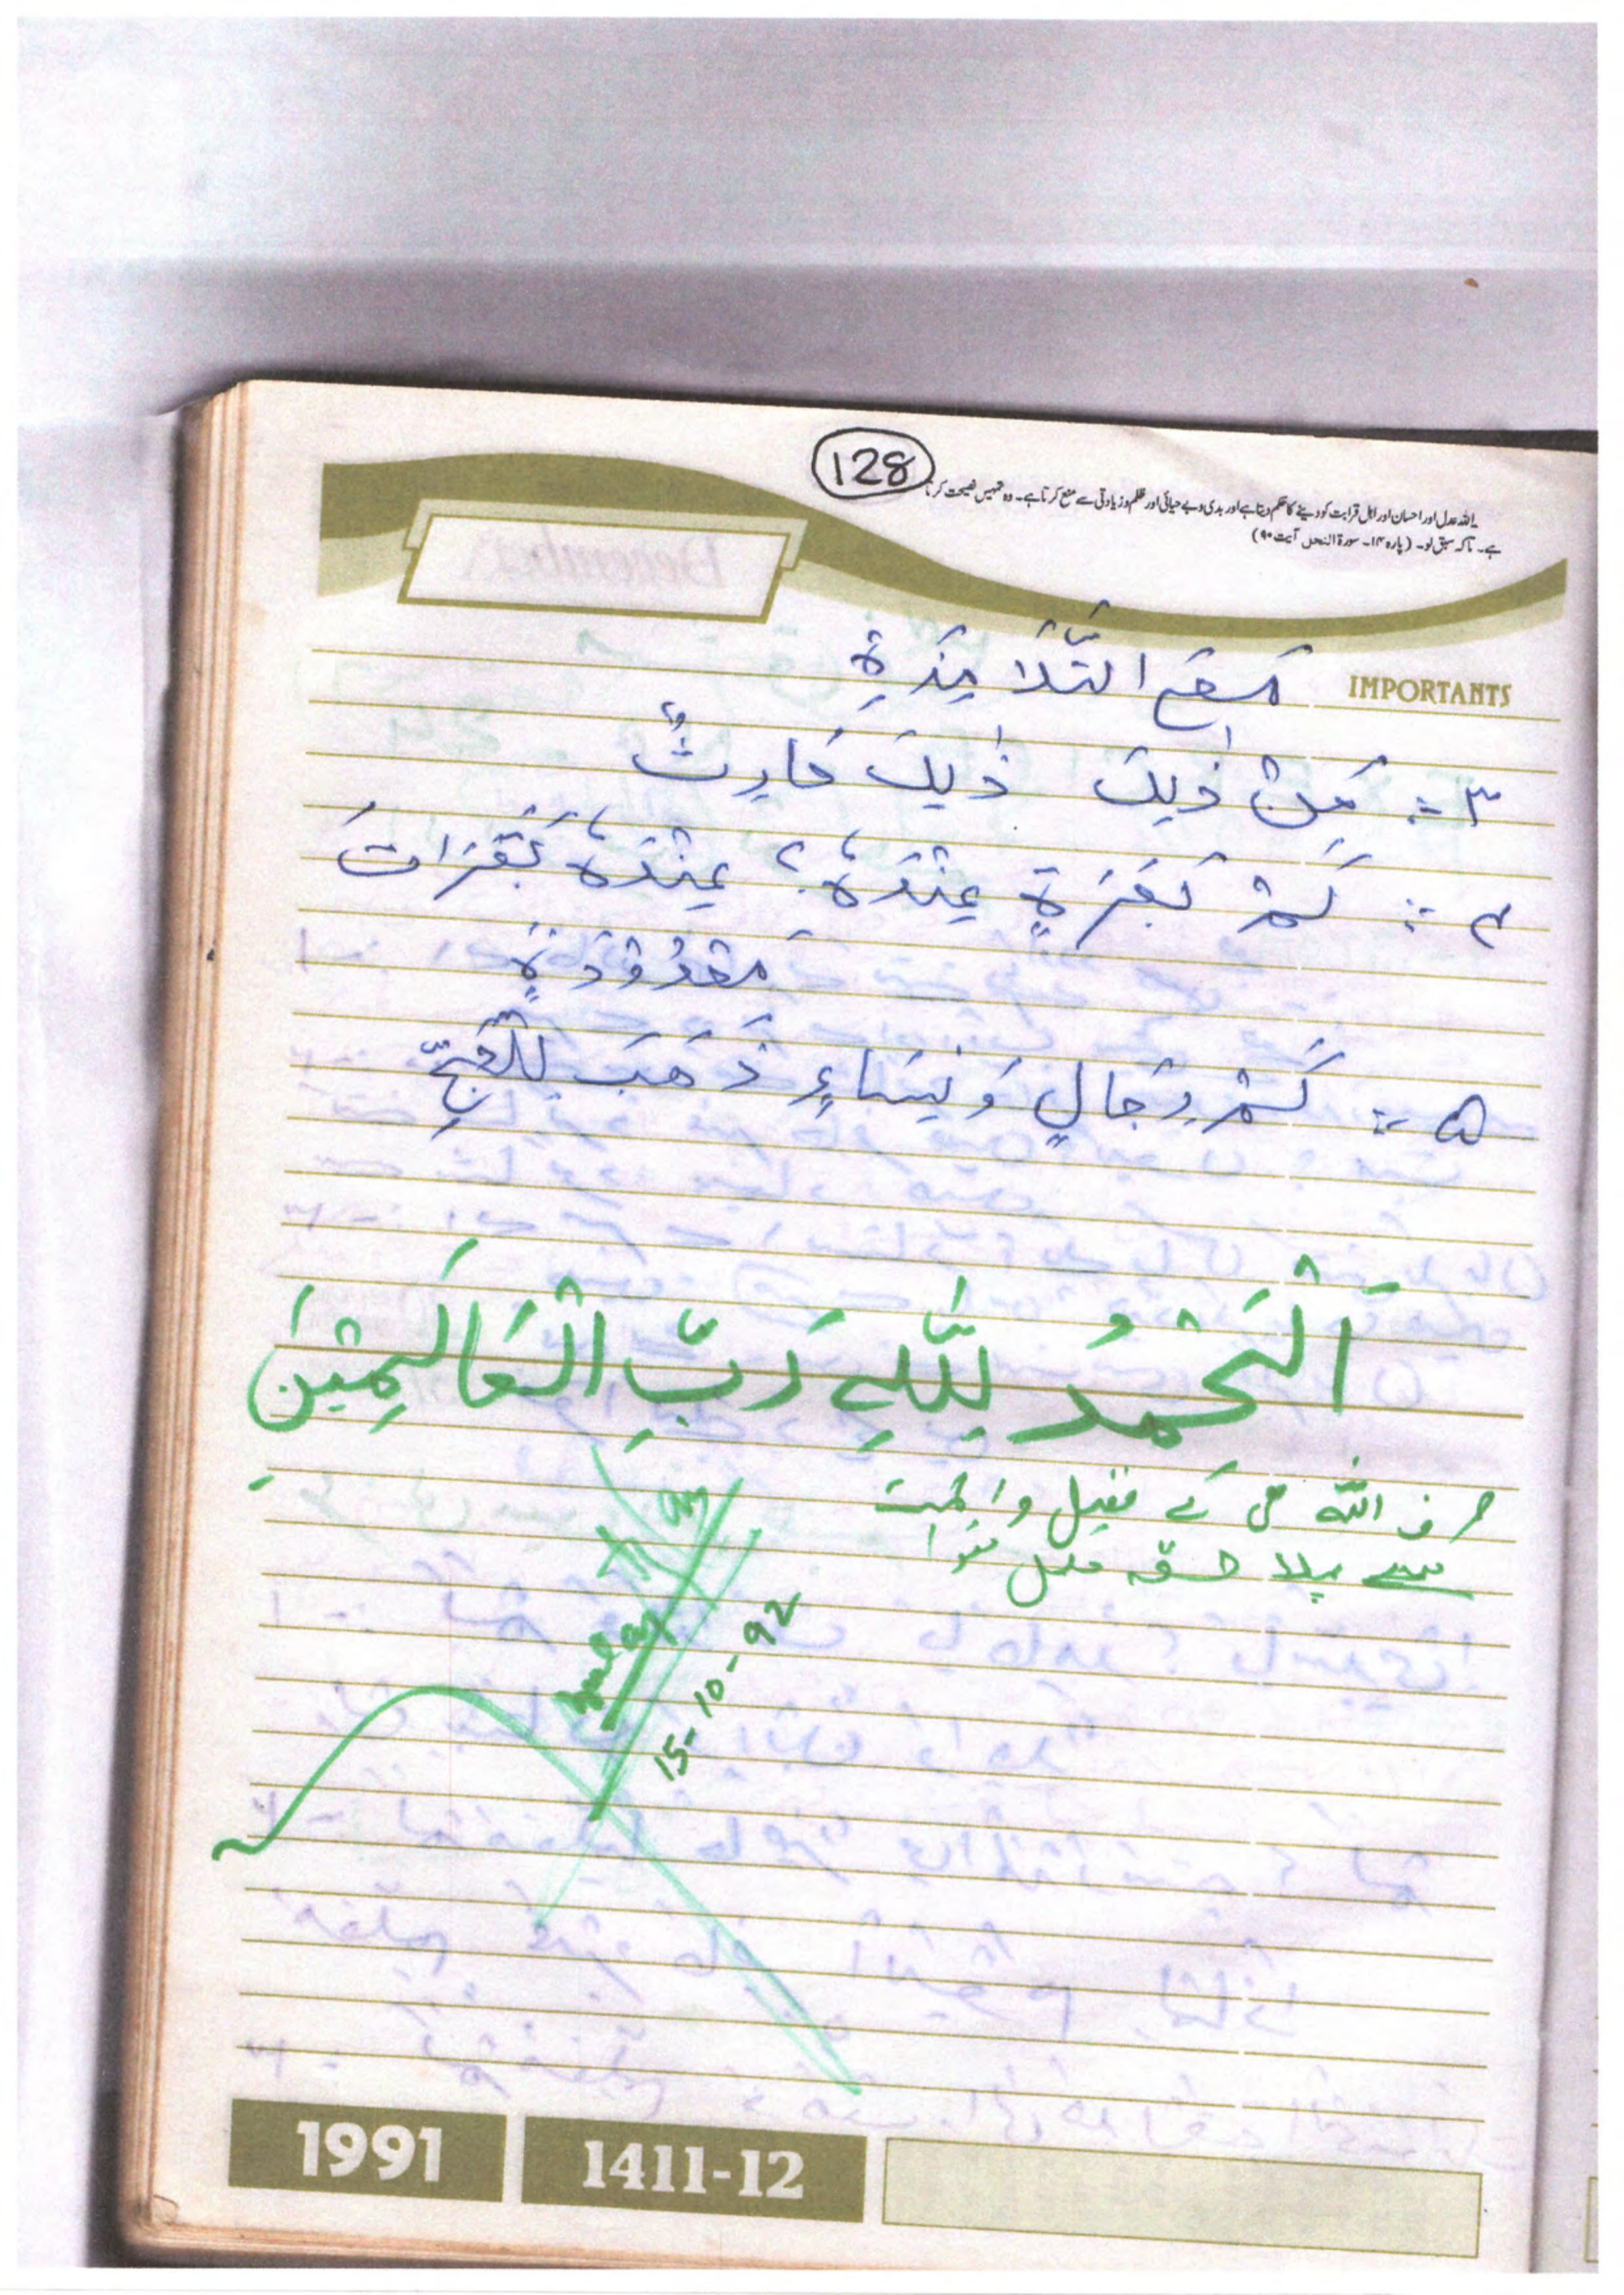 128
اللہ عدل اور احسان اور اہل قرابت کو دینے کا حکم دیتا ہے اور بدی و بے حیائی اور ظلم و زیادتی سے منع کرتا ہے۔ وہ تمہیں نصیحت کرتا
ہے۔ تاکہ سبق لو۔ (پارہ ۱۴۔ سورۃ النحل آیت ۹۰)
IMPORTANTS
مَعَ التَّلَامِذَةِ
۳ :- مَنْ ذٰلِكَ ذٰلِكَ حَارِثٌ
۴ :- كَمْ بَقَرَةٍ عِنْدَهُ؟ عِنْدَهُ بَقَرَاتَ
مَعْدُوْدَةٍ
۵ :- كَمْ رِجَالٍ وَنِسَاءٍ ذَهَبَ لِلْحَجِّ
اَلْحَمْدُ لِلّٰهِ رَبِّ الْعَالَمِيْنَ
صرف اللہ ہی کے فضل و
سے پہلا حصہ مکمل ہوا
15-10-92
1991
1411-12